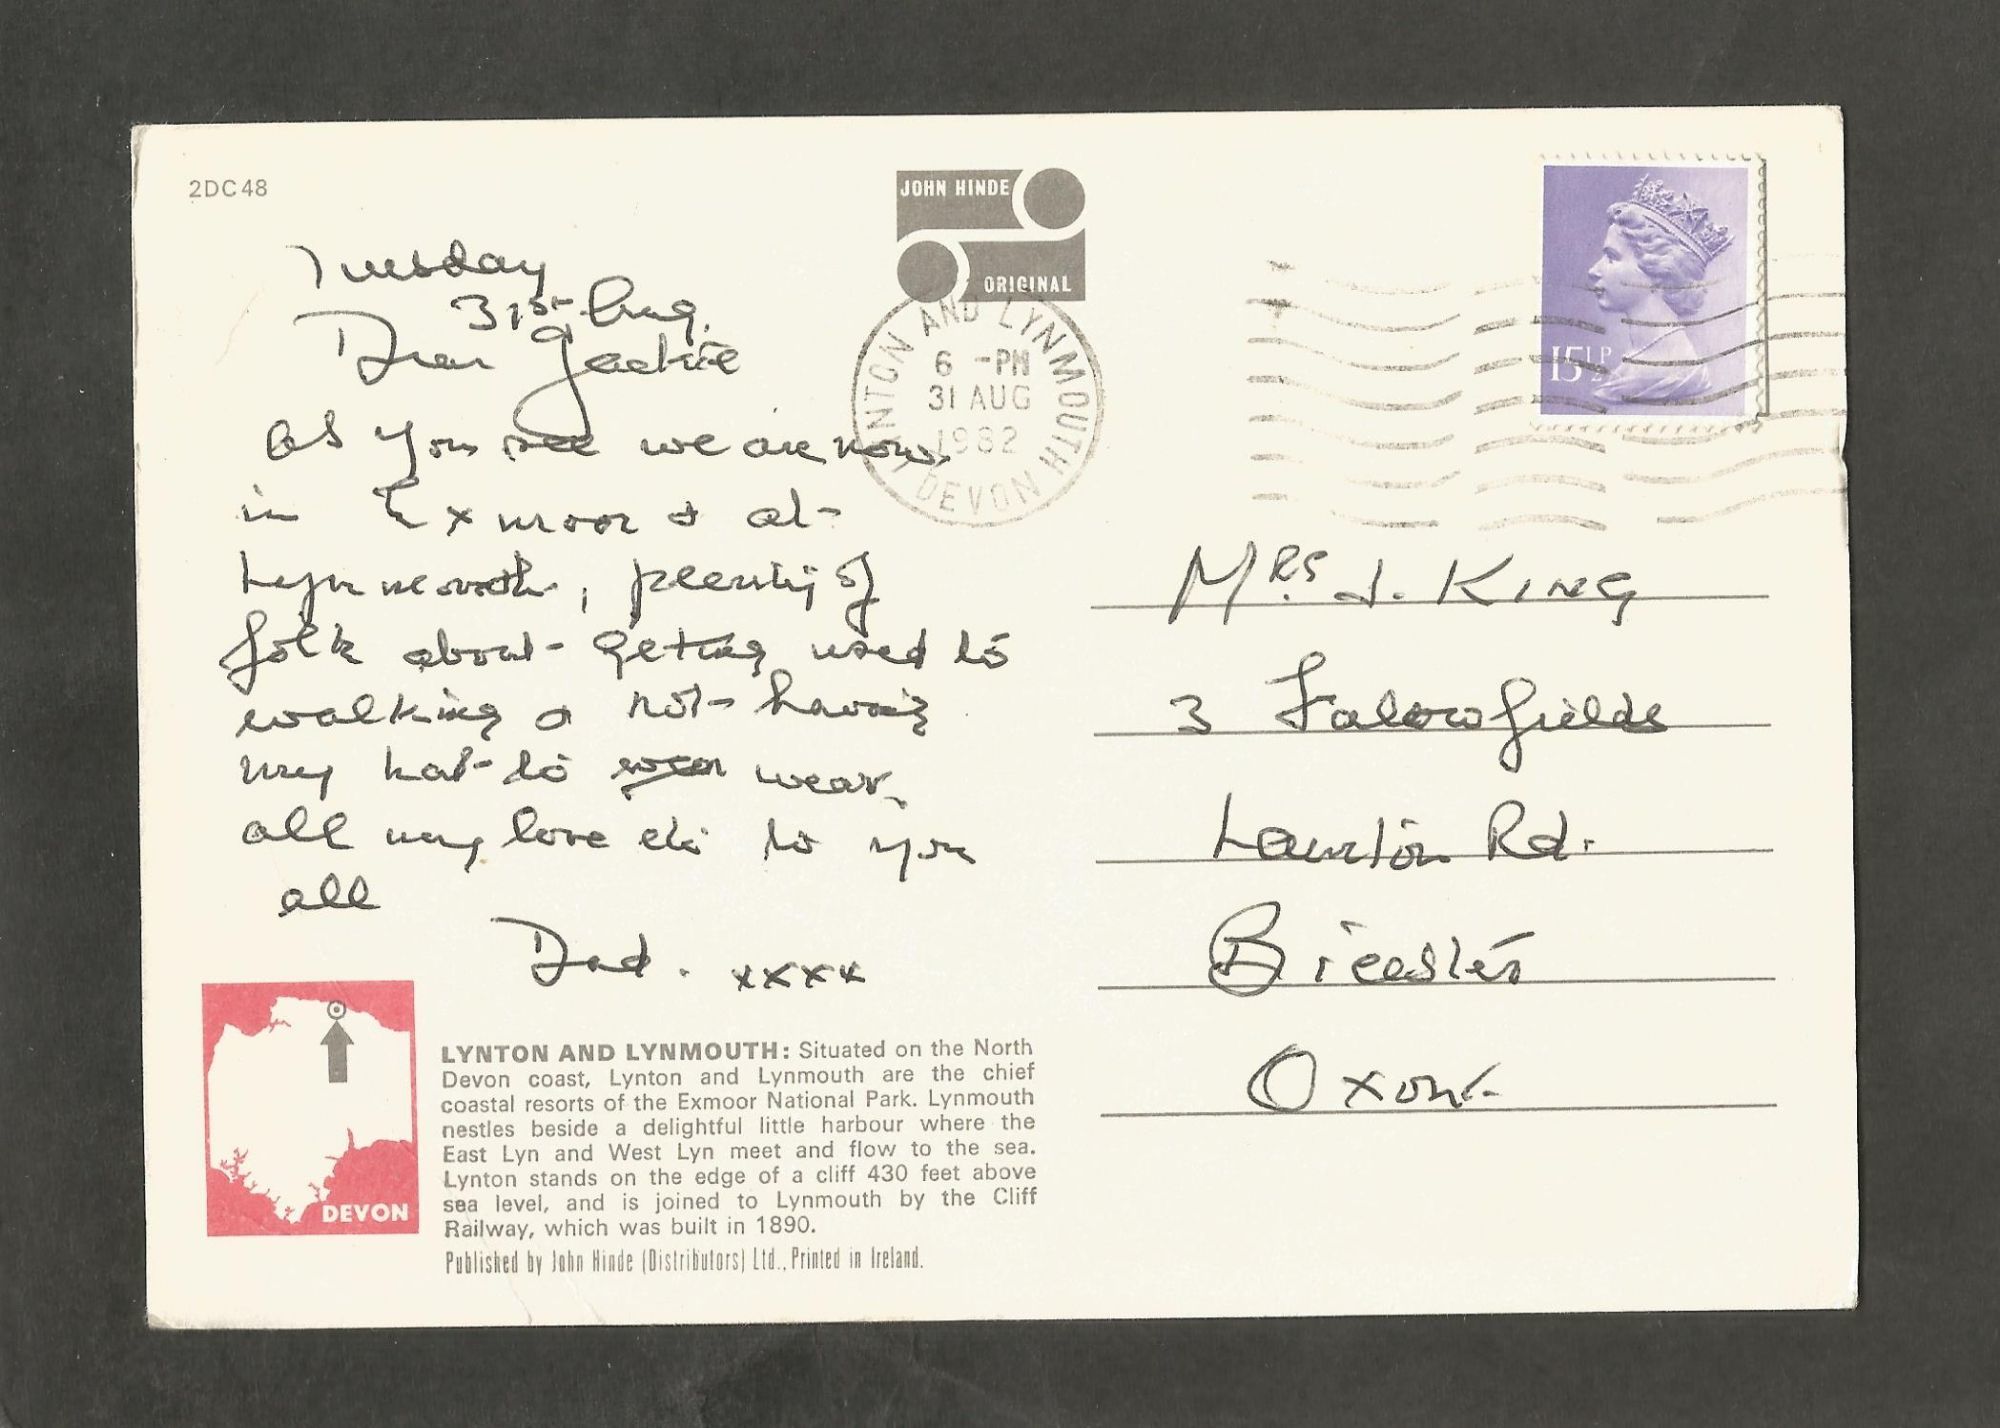 2DC48
JOHN HINDE
ORIGINAL
LYNTON AND LYNMOUTH
6 -PM
31 AUG
1982
DEVON
15½P
Tuesday
31st Aug.
Dear Jackie
as you see we are now
in Exmoor & at
Lynmouth, plenty of
folk about - getting used to
walking & not having
my hat to wear.
all my love etc to you
all
Dad. xxxx
Mrs. J. KING
3 Falowfields
Launton Rd.
Bicester
Oxon.
DEVON
LYNTON AND LYNMOUTH: Situated on the North
Devon coast, Lynton and Lynmouth are the chief
coastal resorts of the Exmoor National Park. Lynmouth
nestles beside a delightful little harbour where the
East Lyn and West Lyn meet and flow to the sea.
Lynton stands on the edge of a cliff 430 feet above
sea level, and is joined to Lynmouth by the Cliff
Railway, which was built in 1890.
Published by John Hinde (Distributors) Ltd., Printed in Ireland.